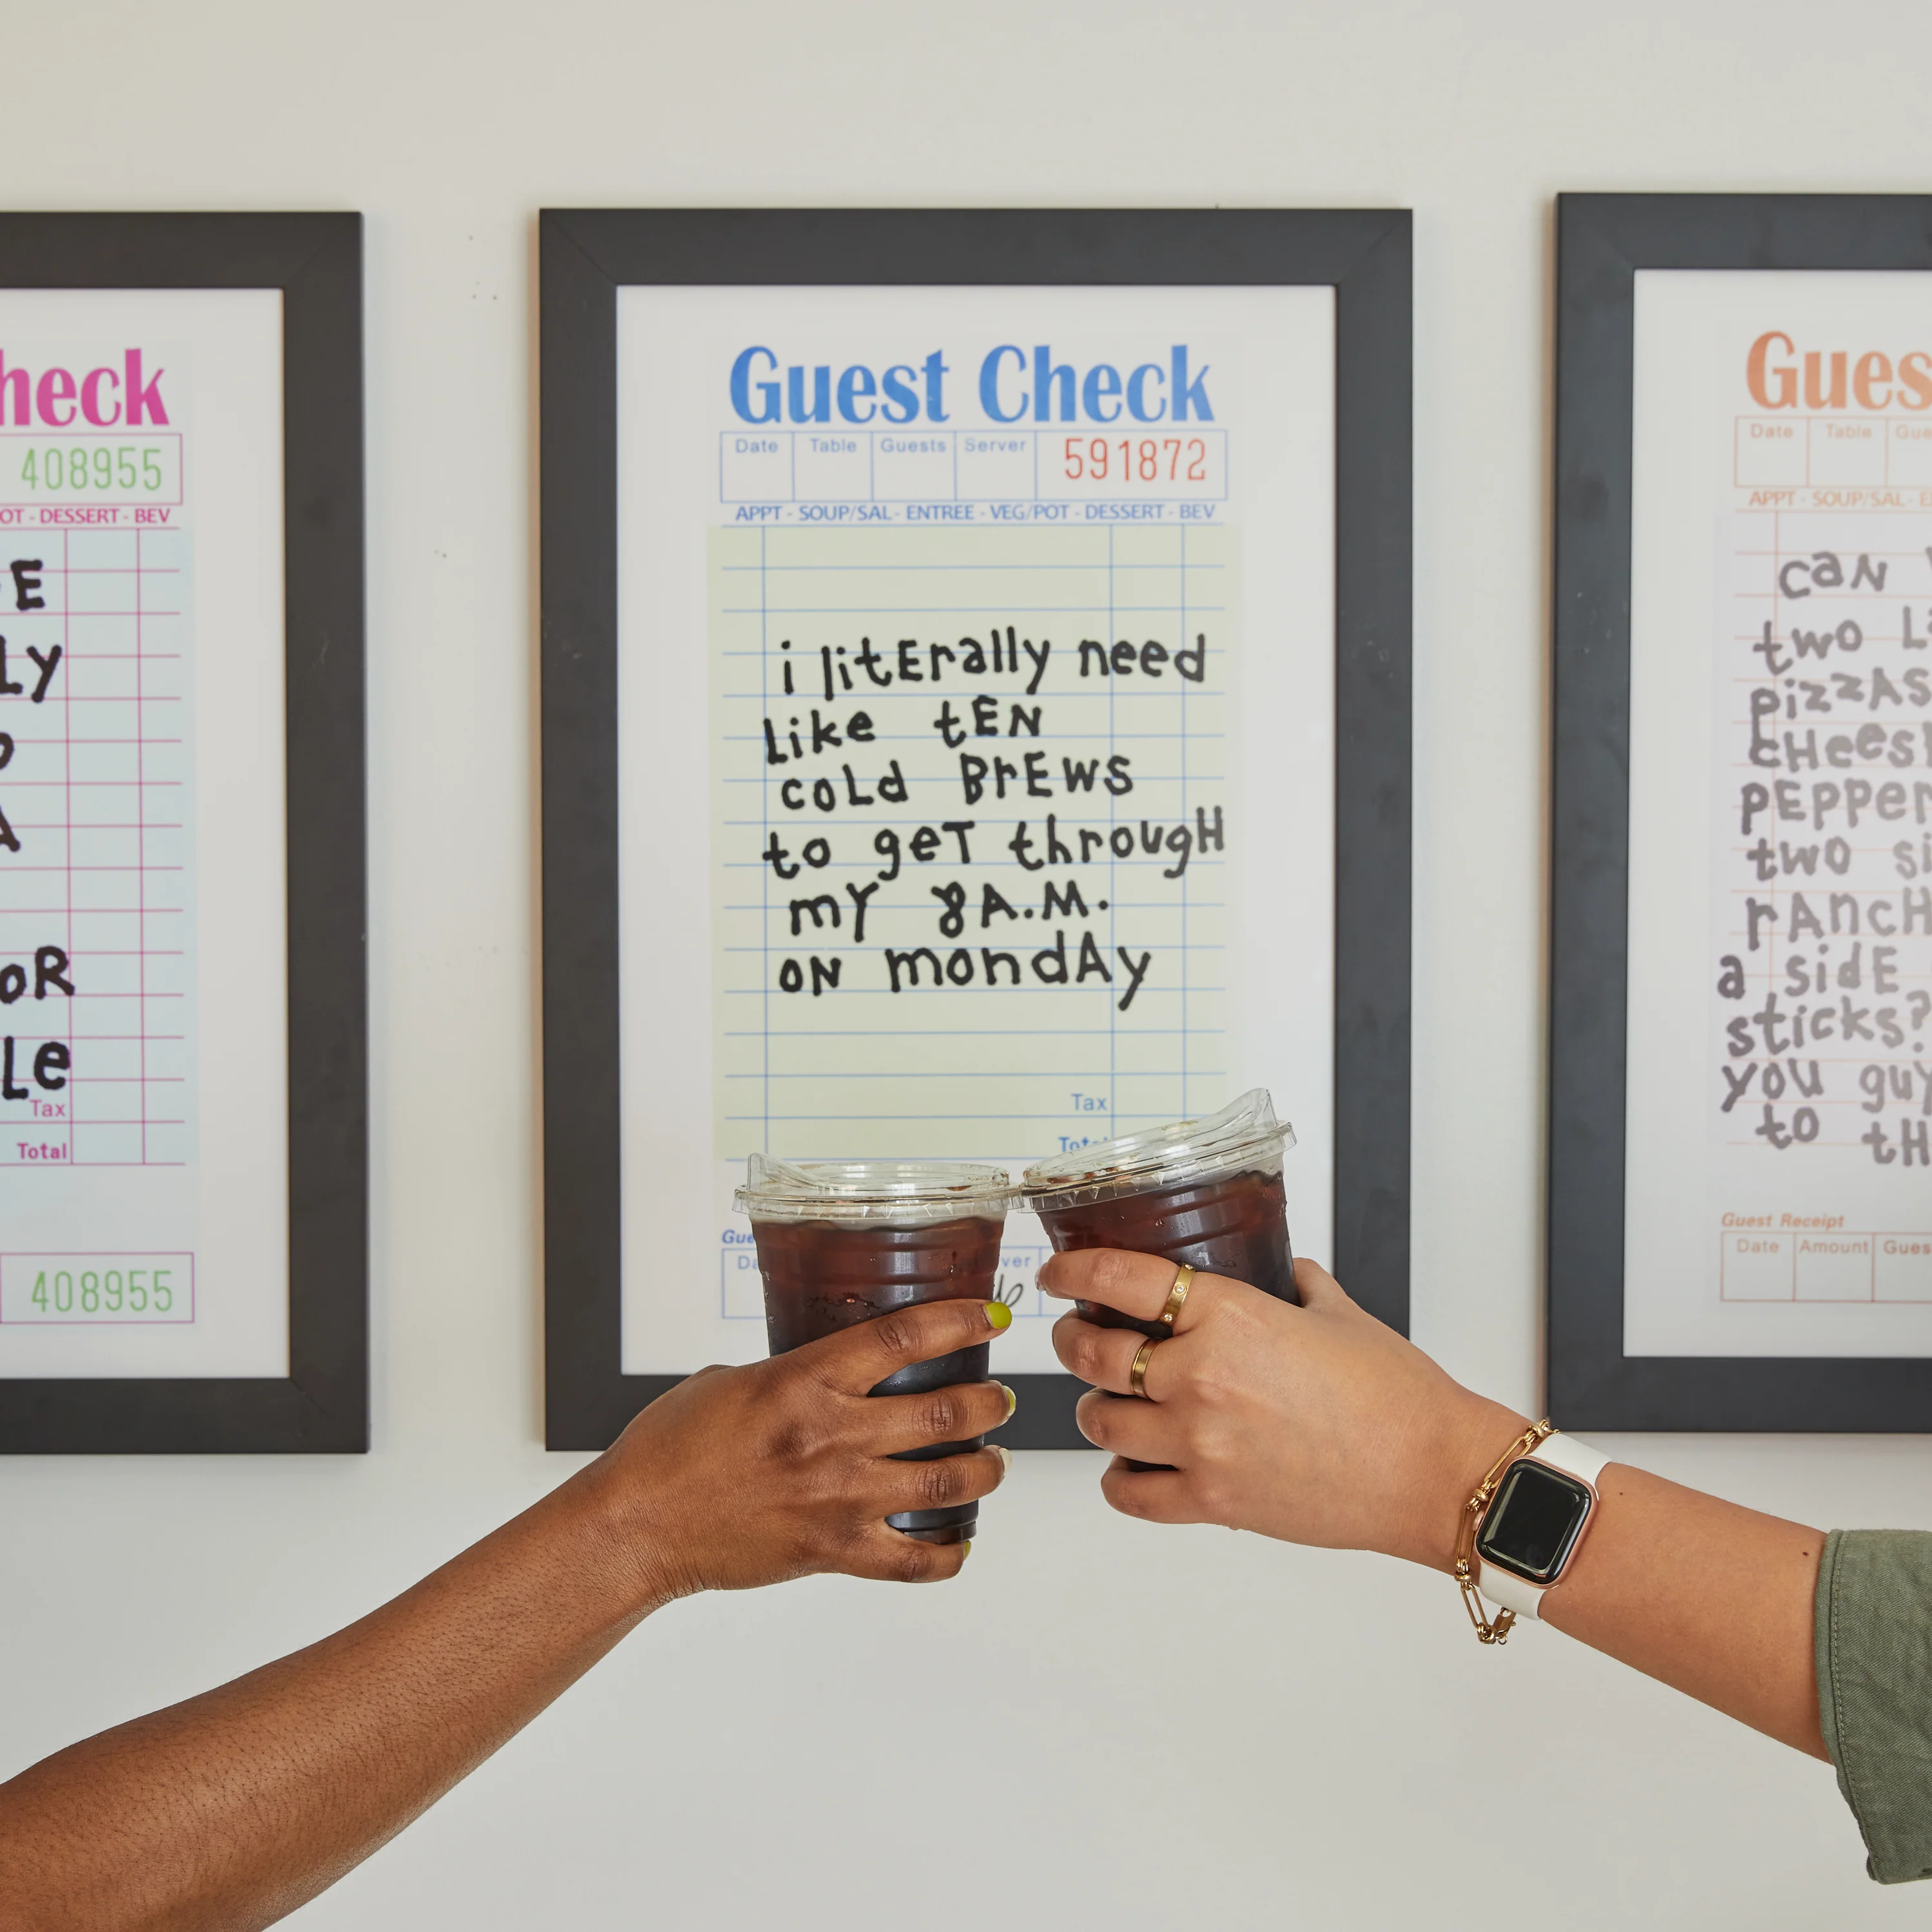 heck
408955
OT - DESSERT - BEV
E
LY
A
oR
Le
Tax
Total
408955
Guest Check
Date Table Guests Server 591872
APPT - SOUP/SAL - ENTREE - VEG/POT - DESSERT - BEV
i litErally need
Like tEN
coLd BrEws
to geT througH
mY 8 A.M.
oN mondAy
Tax
Guest
Date Table
APPT - SOUP/SAL -
caN
two
pizzAS
two
rAncH
a sidE
sticks?
you guy
to
Guest Receipt
Date Amount